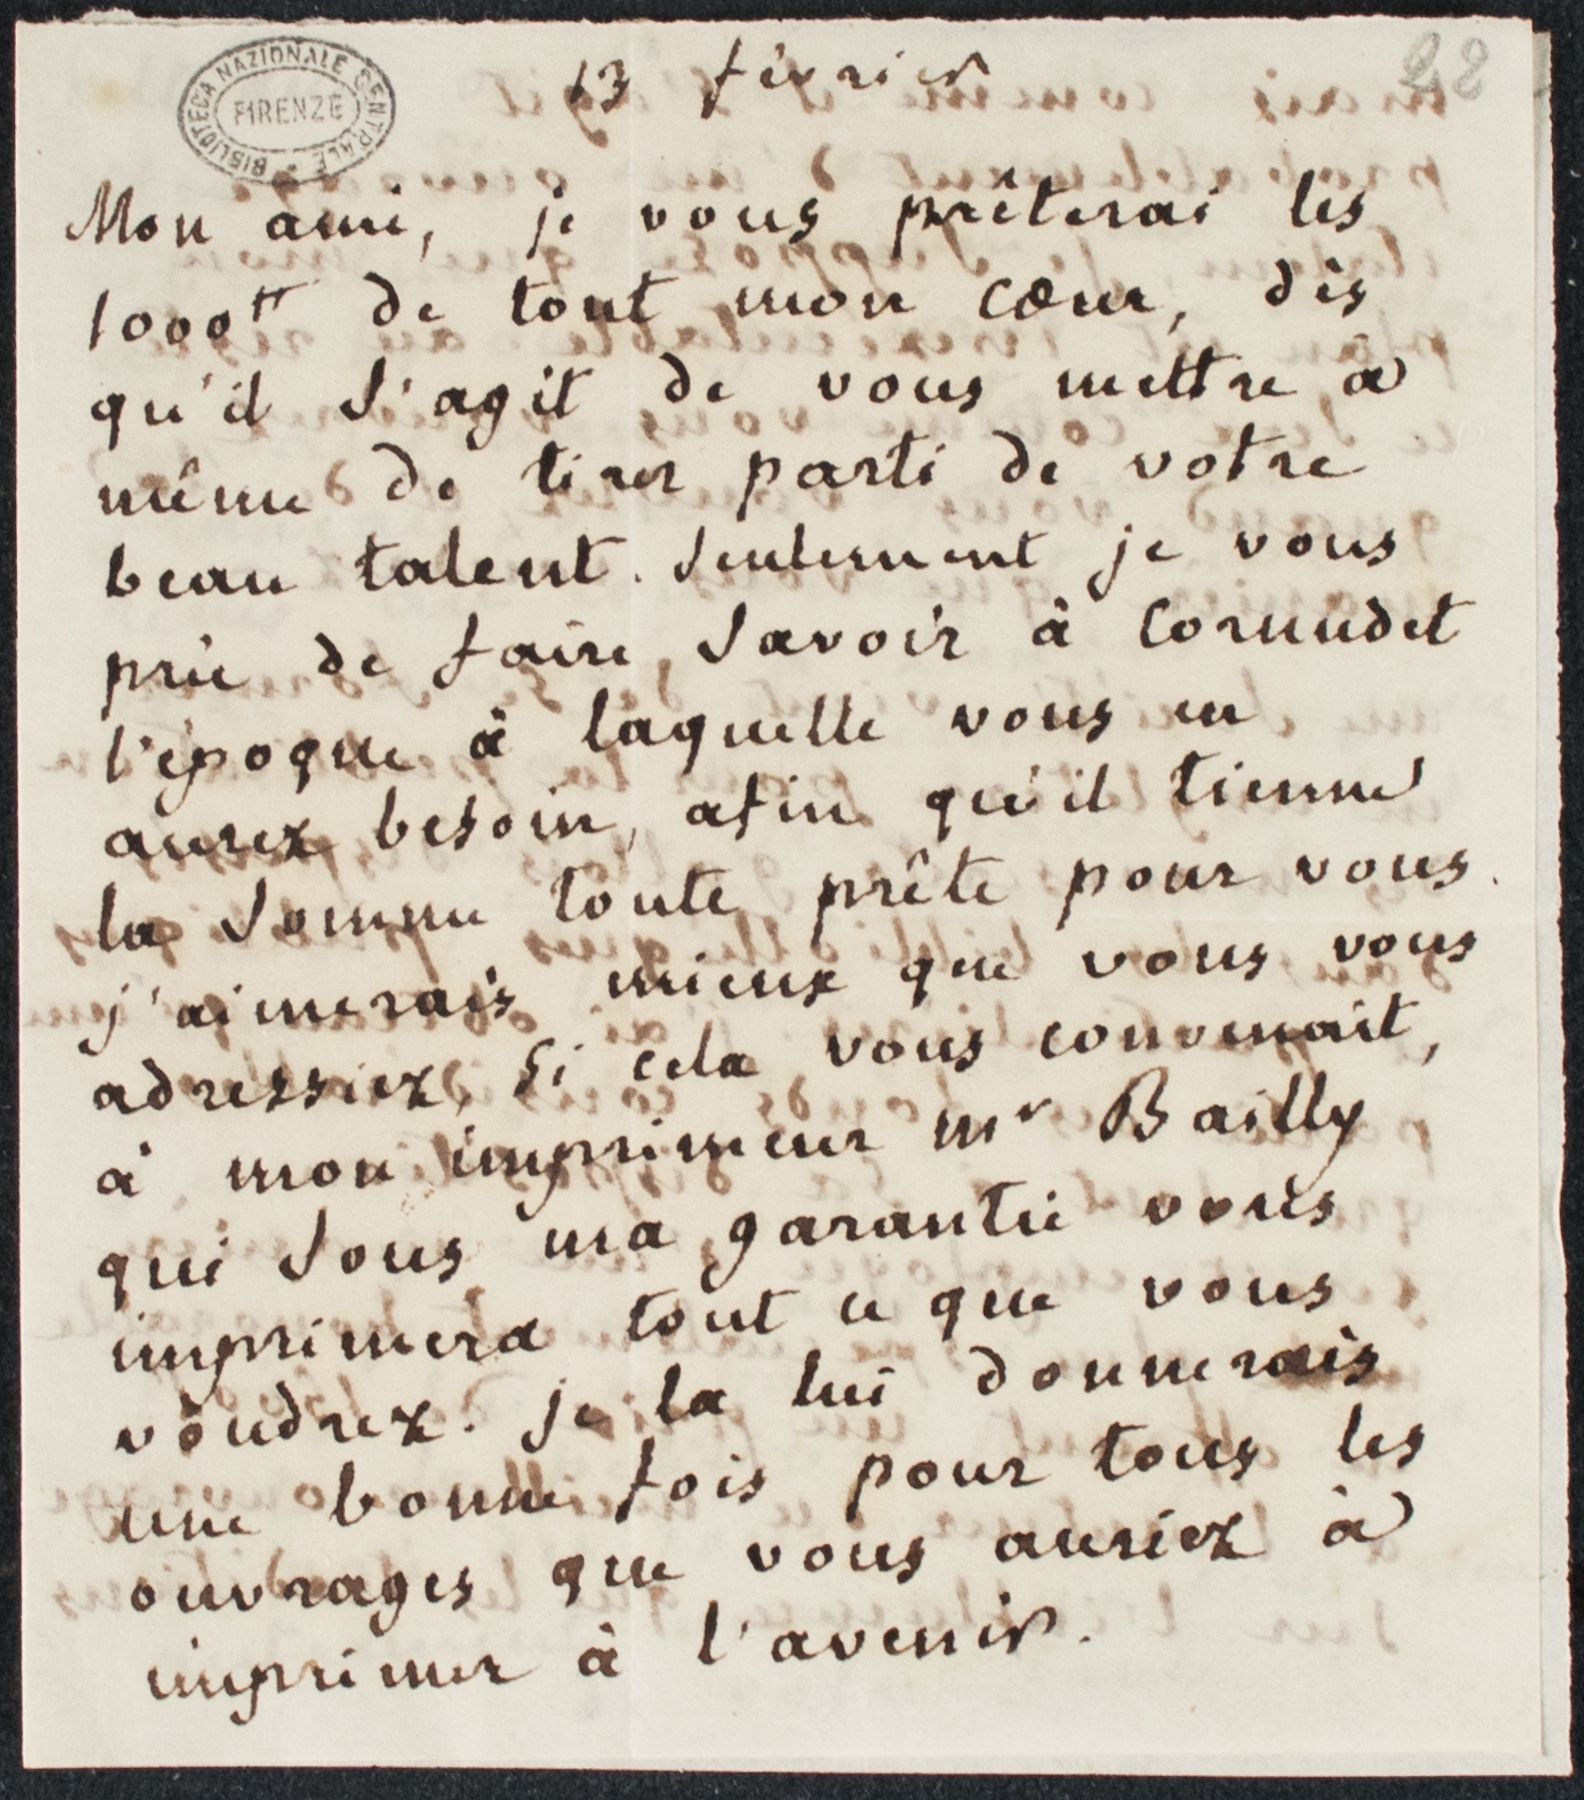 BIBLIOTECA NAZIONALE CENTRALE
FIRENZE
28
13 février
Mon ami, je vous prêterai les
1000 ₶ de tout mon cœur, dès
qu'il s'agit de vous mettre à
même de tirer parti de votre
beau talent. Seulement je vous
prie de faire savoir à Cornudet
l'époque à laquelle vous en
aurez besoin, afin qu'il tienne
la somme toute prête pour vous.
j'aimerais mieux que vous vous
adressiez, si cela vous convenait,
à mon imprimeur Mr Bailly
qui sous ma garantie vous
imprimera tout ce que vous
voudrez. je la lui donnerais
une bonne fois pour tous les
ouvrages que vous auriez à
imprimer à l'avenir.